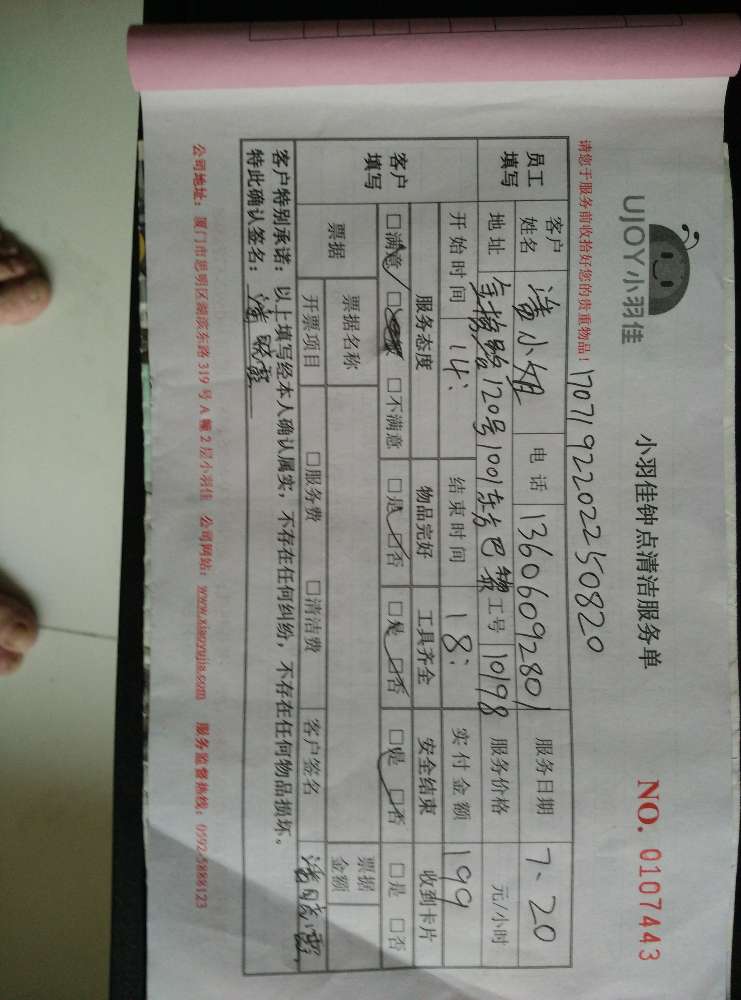 UJOY小羽佳
小羽佳钟点清洁服务单
NO. 0107443
请您于服务前收拾好您的贵重物品!
1707192202250820
员工填写
客户姓名 潘小姐 电话 13606092801 服务日期 7、20
地址 120号1001 工号 10198 服务价格 元/小时
开始时间 14: 结束时间 18: 实付金额 199
客户填写
服务态度 物品完好 工具齐全 安全结束 收到卡片
□满意 □ □不满意 □是 □否 □是 □否 □是 □否 □是 □否
票据 票据名称 票据金额
开票项目 □服务费 □清洁费 客户签名 潘晓霞
客户特别承诺:以上填写经本人确认属实,不存在任何纠纷,不存在任何物品损坏。
特此确认签名: 潘晓霞
公司地址:厦门市思明区湖滨东路319号A幢2层小羽佳 公司网站:www.xiaoyujia.com 服务监督热线:0592-5888123